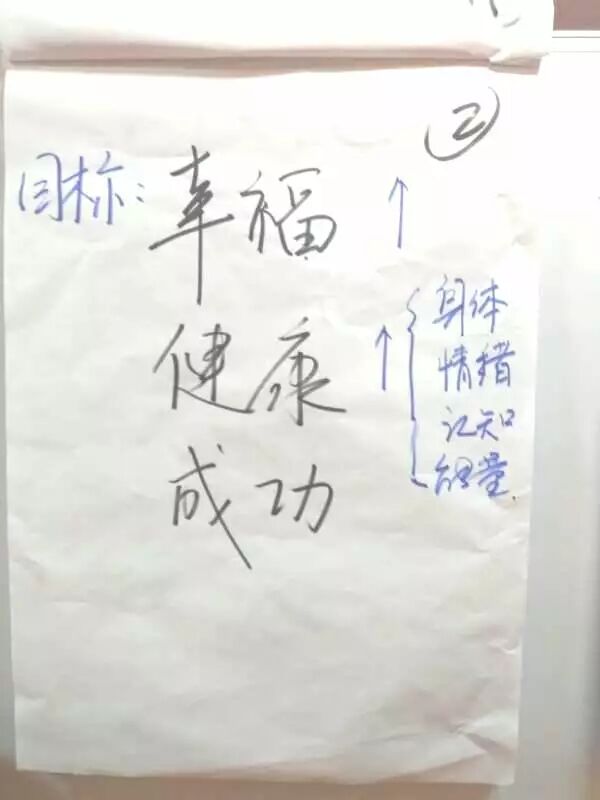 ②
目标：幸福 ↑
健康 ↑ { 身体
情绪
认知
能量.
成功